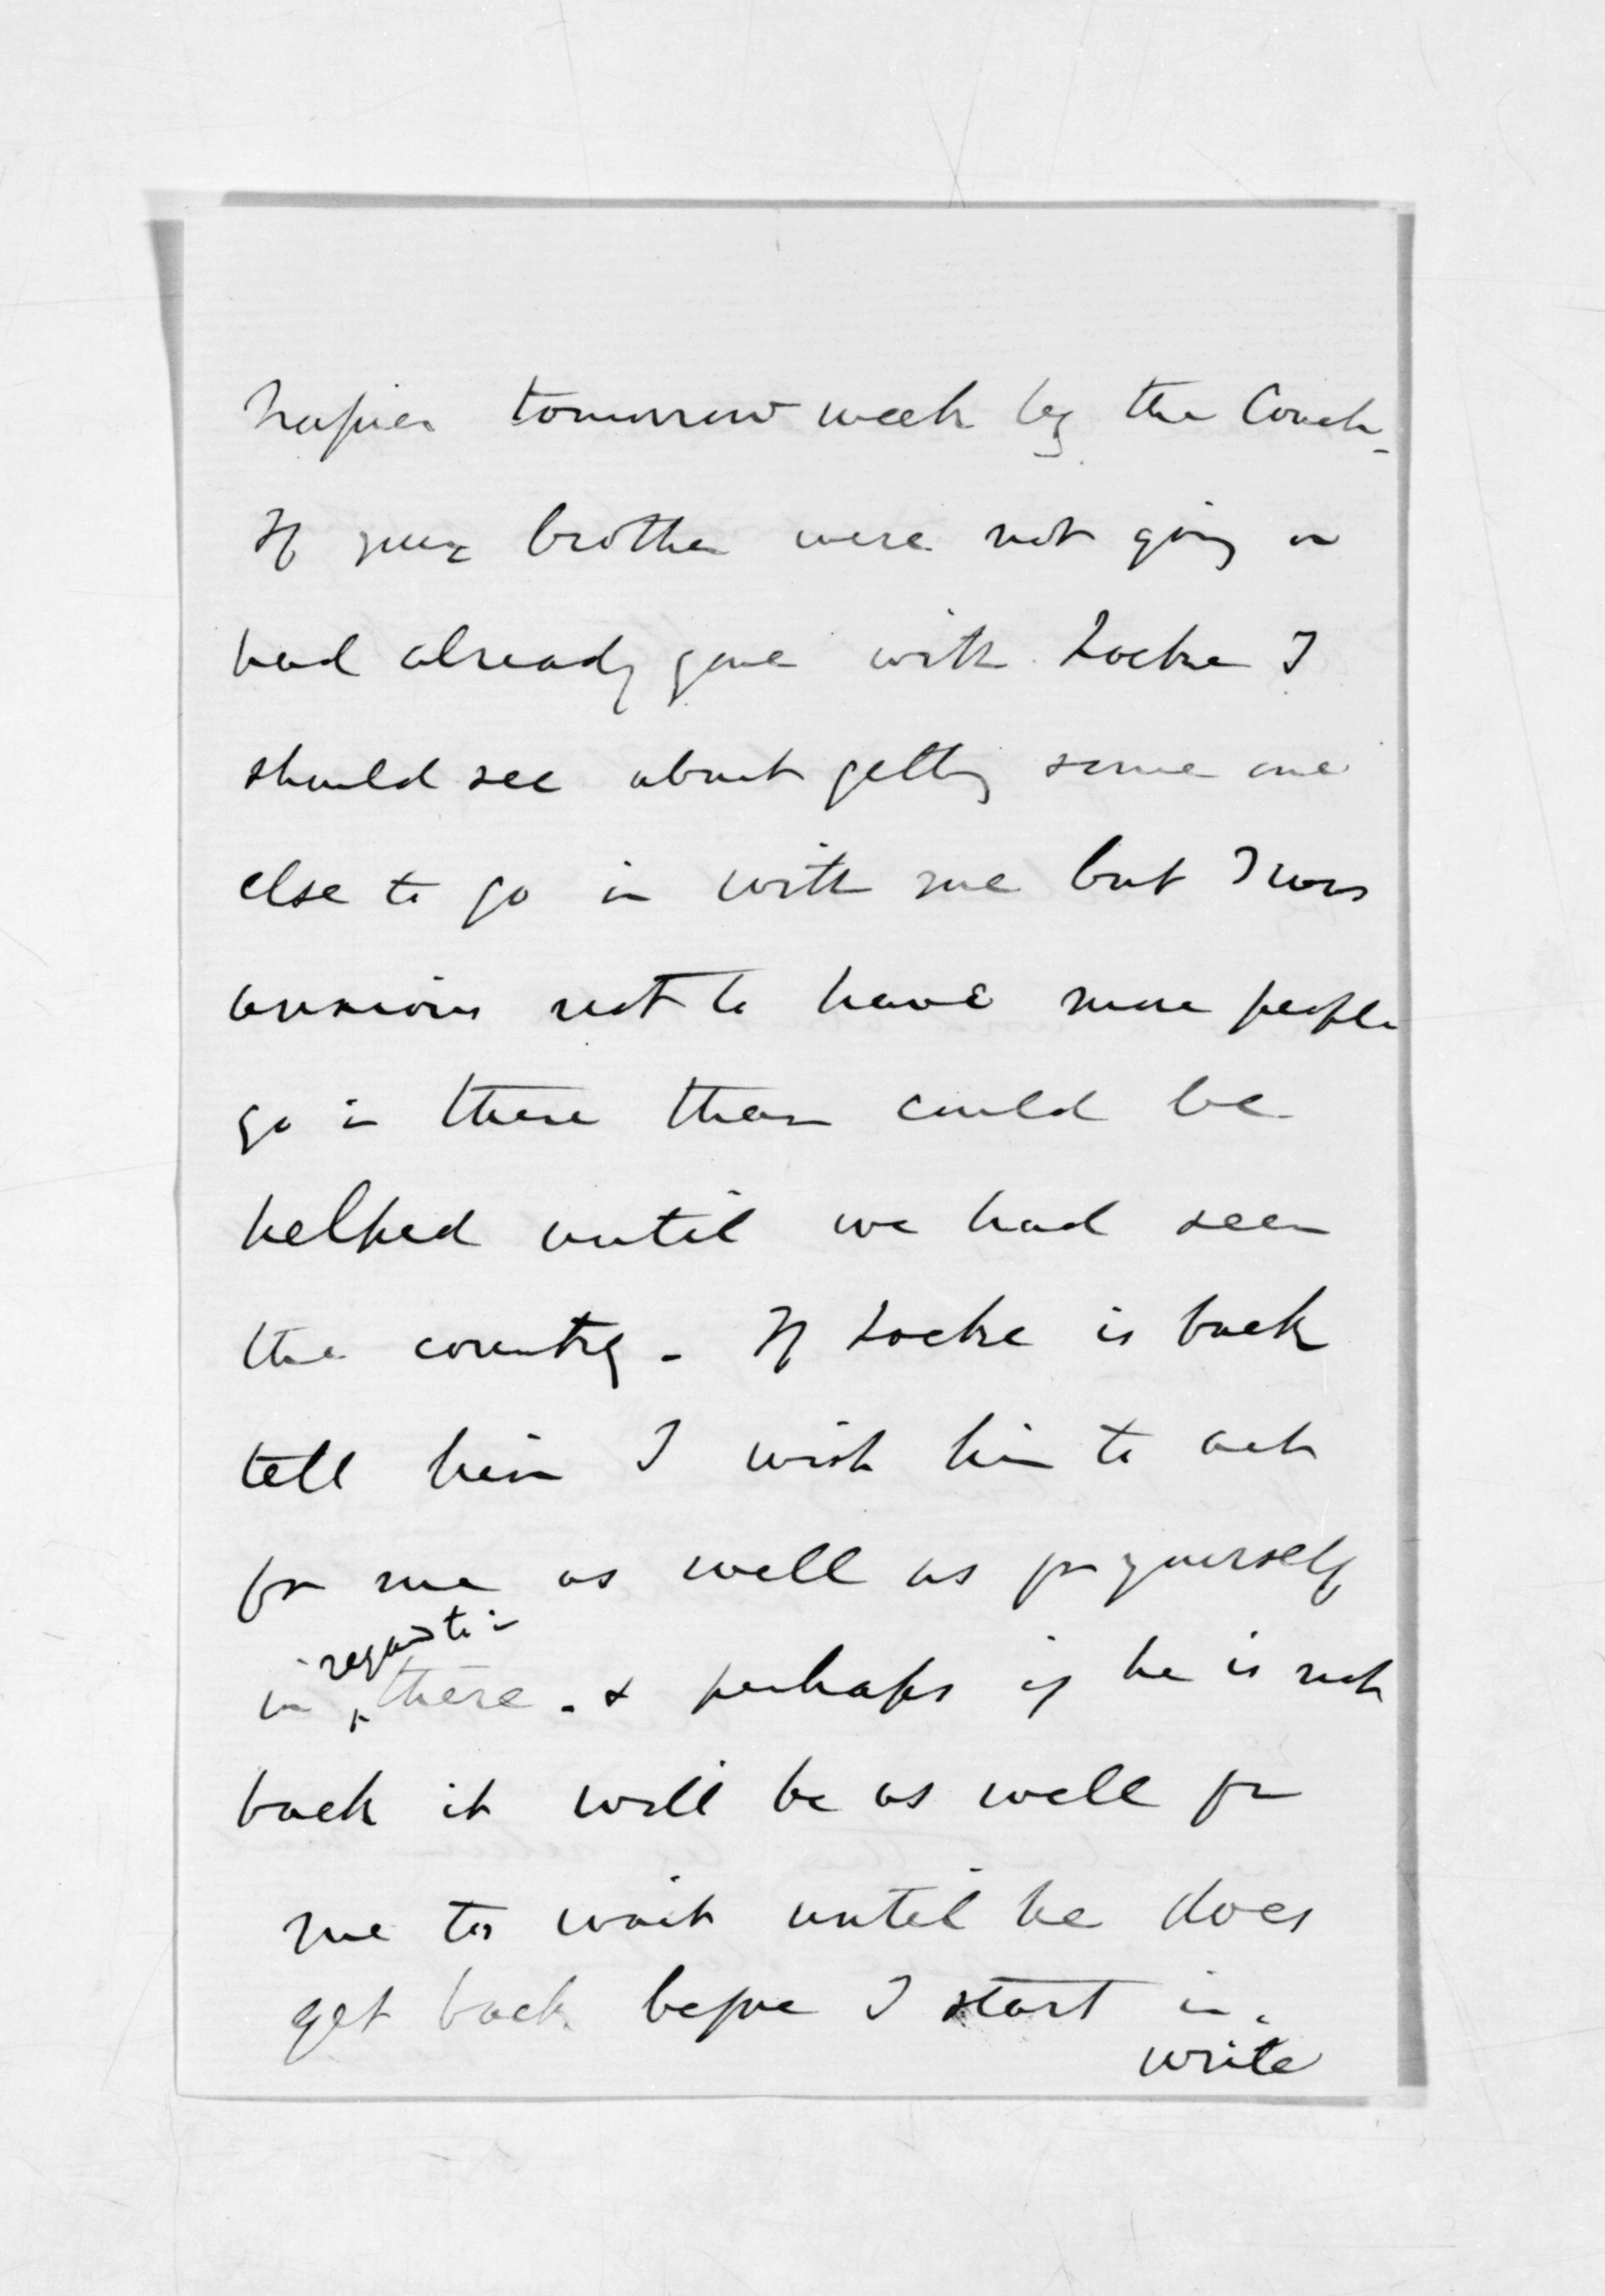 Napier tomorrow week by the Coach -
If your brother were not going or
had already gone with Locke I
should see about getting some one
else to go in with me but I was
anxious not to have more people
go in there than could be
helped until we had seen
the country - If Locke is back
tell him I wish him to act
for me as well as for yourself
regard to in
in ^ there - & perhaps if he is not
back it will be as well for
me to wait until he does
get back before I start in.
write